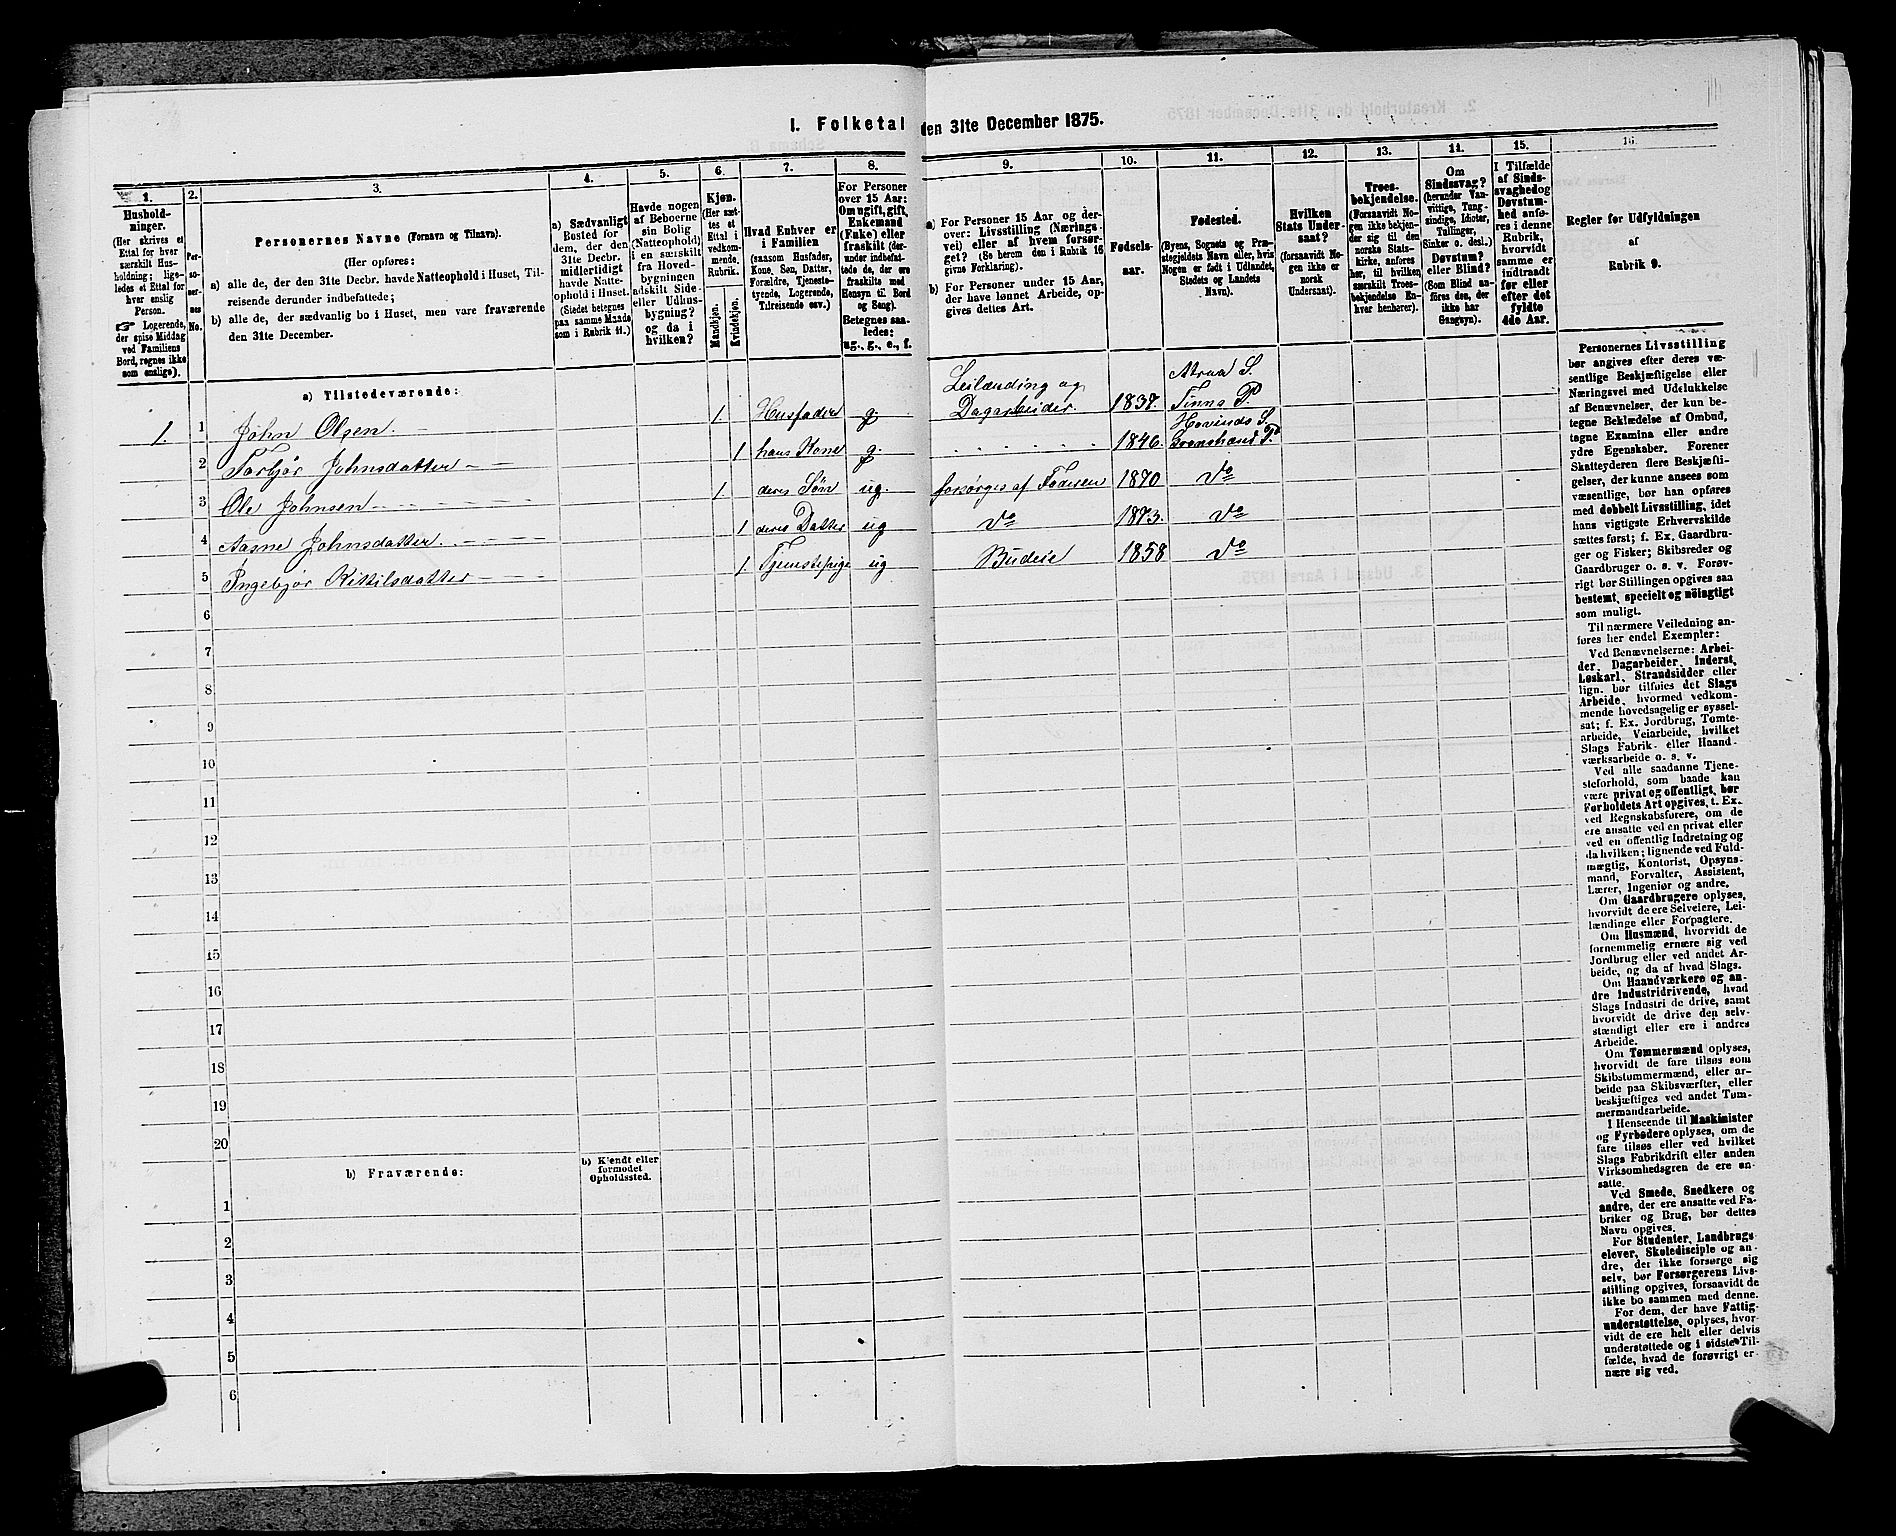 1. Folketal den 31te December 1875.
1.
Hushold-
ninger.
(Her skrives et
Ettal for hver
særskilt Hus-
holdning; lige-
ledes et Ettal for
hver enslig
Person.
☞ Logerende,
der spise Middag
ved Familiens
Bord, regnes ikke
som enslige).
2.
Per-
so-
ner-
nes
No.
3.
Personernes Navne (Fornavn og Tilnavn).
(Her opføres:
a) alle de, der den 31te Decbr. havde Natteophold i Huset, Til-
reisende derunder indbefattede;
b) alle de, der sædvanlig bo i Huset, men vare fraværende
den 31te December.
4.
a) Sædvanligt
Bosted for
dem, der den
31te Decbr.
midlertidigt
havde Natte-
ophold i Huset.
(Stedet betegnes
paa samme Maade
som i Rubrik 11.)
5.
Havde nogen
af Beboerne
sin Bolig
(Natteophold)
i en særskilt
fra Hoved-
bygningen
adskilt Side-
eller Udhus-
bygning?
og da i
hvilken?
6.
Kjøn.
(Her sæt-
tes et
Ettal i
vedkom-
mende
Rubrik.
Mandkjøn.
Kvindekjøn.
7.
Hvad Enhver er
i Familien
(saasom Husfader,
Kone, Søn, Datter,
Forældre, Tjeneste-
tyende, Logerende,
Tilreisende osv.)
8.
For Personer
over 15 Aar:
Om ugift, gift,
Enkemand
(Enke) eller
fraskilt (der-
under indbefat-
tede de, der ere
fraskilte med
Hensyn til Bord
og Seng).
Betegnes saa-
ledes:
ug., g., e., f.
9.
a) For Personer 15 Aar og der-
over: Livsstilling (Nærings-
vei) eller af hvem forsør-
get? (Se herom den i Rubrik 16
givne Forklaring).
b) For Personer under 15 Aar,
der have lønnet Arbeide, op-
gives dettes Art.
10.
Fødsels-
aar.
11.
Fødested.
(Byens, Sognets og Præ-
stegjeldets Navn eller, hvis
Nogen er født i Udlandet,
Stedets og Landets
Navn).
12.
Hvilken
Stats Under-
saat?
(forsaavidt No-
gen ikke er
norsk
Undersaat).
13.
Troes-
bekjendelse.
(Forsaavidt No-
gen ikke bekjen-
der sig til den
norske Stats-
kirke, anføres
her, til hvilken
særskilt Troes-
bekjendelse En-
hver henhører).
14.
Om
Sindssvag?
(herunder Van-
vittige, Tung-
sindige, Idioter,
Tullinger,
Sinker o. desl.)
Døvstum?
eller Blind?
(Som Blind an-
føres den, der
ikke har
Gangsyn).
15.
I Tilfælde
af Sinds-
svaghed og
Døvstum-
hed anfø-
res i denne
Rubrik,
hvorvidt
samme er
indtraadt
før eller
efter det
fyldte
4de Aar.
16.
Regler for Udfyldningen
af
Rubrik 9.
a) Tilstedeværende:
1. 1 John Olsen. 1. Husfader g. Leilænding og Dagarbeider. 1837. Atraa S. Tinns P.
2 Torbjør Johnsdatter 1 hans Kone g. 1846. Hovinds S. Gransherad Pr
3 Ole Johnsen 1. deres Søn ug. forsørges af Faderen 1870 do
4 Aasne Johnsdatter. 1 deres Datter ug do 1873. do
5 Ingebjør Kittilsdatter 1. Tjenestepige ug Budeie 1858 do
6
7
8
9
10
11
12
13
14
15
16
17
18
19
20
b) Fraværende:
b) Kjendt eller
formodet
Opholdssted.
1
2
3
4
5
6
Personernes Livsstilling
bør angives efter deres væ-
sentlige Beskjæftigelse eller
Næringsvei med Udelukkelse
af Benævnelser, der kun be-
tegne Beklædelse af Ombud,
tagne Examina eller andre
ydre Egenskaber. Forener
Skatteyderen flere Beskjæfti-
gelser, der kunne ansees som
væsentlige, bør han opføres
med dobbelt Livsstilling, idet
hans vigtigste Erhvervskilde
sættes først; f. Ex. Gaardbru-
ger og Fisker; Skibsreder og
Gaardbruger o. s. v. Forøv-
rigt bør Stillingen opgives saa
bestemt, specielt og nöiagtigt
som muligt.
Til nærmere Veiledning an-
føres her endel Exempler:
Ved Benævnelserne: Arbei-
der, Dagarbeider, Inderst,
Løskarl, Strandsidder eller
lign. bør tilføies det Slags
Arbeide, hvormed vedkom-
mende hovedsagelig er syssel-
sat; f. Ex. Jordbrug, Tomte-
arbeide, Veiarbeide, hvilket
Slags Fabrik- eller Haand-
værksarbeide o. s. v.
Ved alle saadanne Tjene-
steforhold, som baade kan
være privat og offentligt, bør
Forholdets Art opgives, t. Ex.
ved Regnskabsførere, om de
ere ansatte ved en privat eller
ved en offentlig Indretning og
da hvilken; lignende ved Fuld-
mægtig, Kontorist, Opsyns-
mand, Forvalter, Assistent,
Lærer, Ingeniør og andre.
Om Gaardbrugere oplyses,
hvorvidt de ere Selveiere, Lei-
lændinge eller Forpagtere.
Om Husmænd, hvorvidt de
fornemmelig ernære sig ved
Jordbrug eller ved andet Ar-
beide, og da af hvad Slags.
Om Haandværkere og an-
dre Industridrivende, hvad
Slags Industri de drive, samt
hvorvidt de drive den selv-
stændigt eller ere i andres
Arbeide.
Om Tømmermænd oplyses,
hvorvidt de fare tilsøs som
Skibstømmermænd, eller ar-
beide paa Skibsværfter, eller
beskjæftiges ved andet Tøm-
mermandsarbeide.
I Henseende til Maskinister
og Fyrbødere oplyses, om de
fare tilsøs eller ved hvilket
Slags Fabrikdrift eller anden
Virksomhedsgren de ere an-
satte.
Ved Smede, Snedkere og
andre, der ere ansatte ved Fa-
briker og Brug, bør dettes
Navn opgives.
For Studenter, Landbrugs-
elever, Skoledisciple og an-
dre, der ikke forsørge sig
selv, bør Forsørgerens Livs-
stilling opgives, forsaavidt de
ikke bo sammen med denne.
For dem, der have Fattig-
understøttelse, oplyses, hvor-
vidt de ere helt eller delvis
understøttede og i sidste Til-
fælde, hvad de forøvrigt er-
nære sig ved.